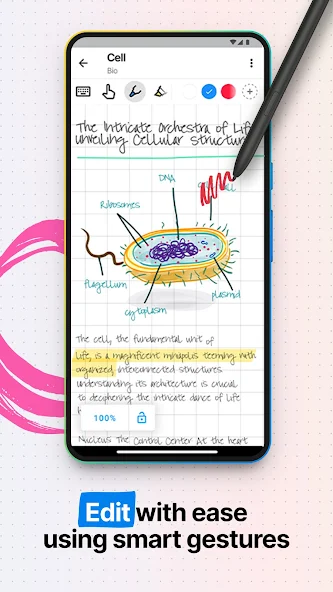 Cell
Bio
The Intricate Orchestra of Life
unveiling Cellular Structure
DNA
Ribosomes
flagellum
cytoplasm
plasmid
The cell, the fundamental unit of
life, is a magnificent minapolis teeming with
organized, interconnected structures
understanding its architecture is crucial
to deciphering the intricate dance of life
100%
Nucleus The Control Center At the heart
Edit with ease
using smart gestures